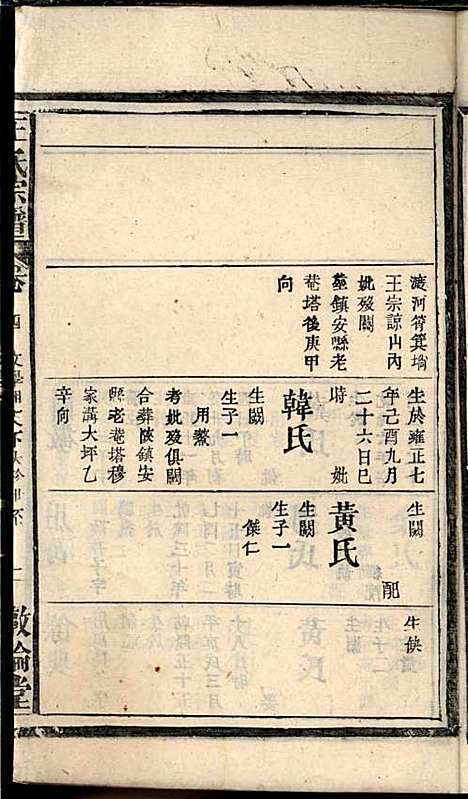 漉河筲箕塆
王宗諒山內
妣歿闕
塟鎮安縣老
菴塔後庚甲
向
生於雍正七
年己酉九月
二十六日巳
時 妣
韓氏
生闕
生子一
用鰲
考妣歿俱闕
合葬陜鎮安
縣老菴塔穆
家溝大坪乙
辛向
生闕
配
黃氏
生闕
生子一
傑仁
生俟
王氏宗譜
卷
四
二
敦倫堂